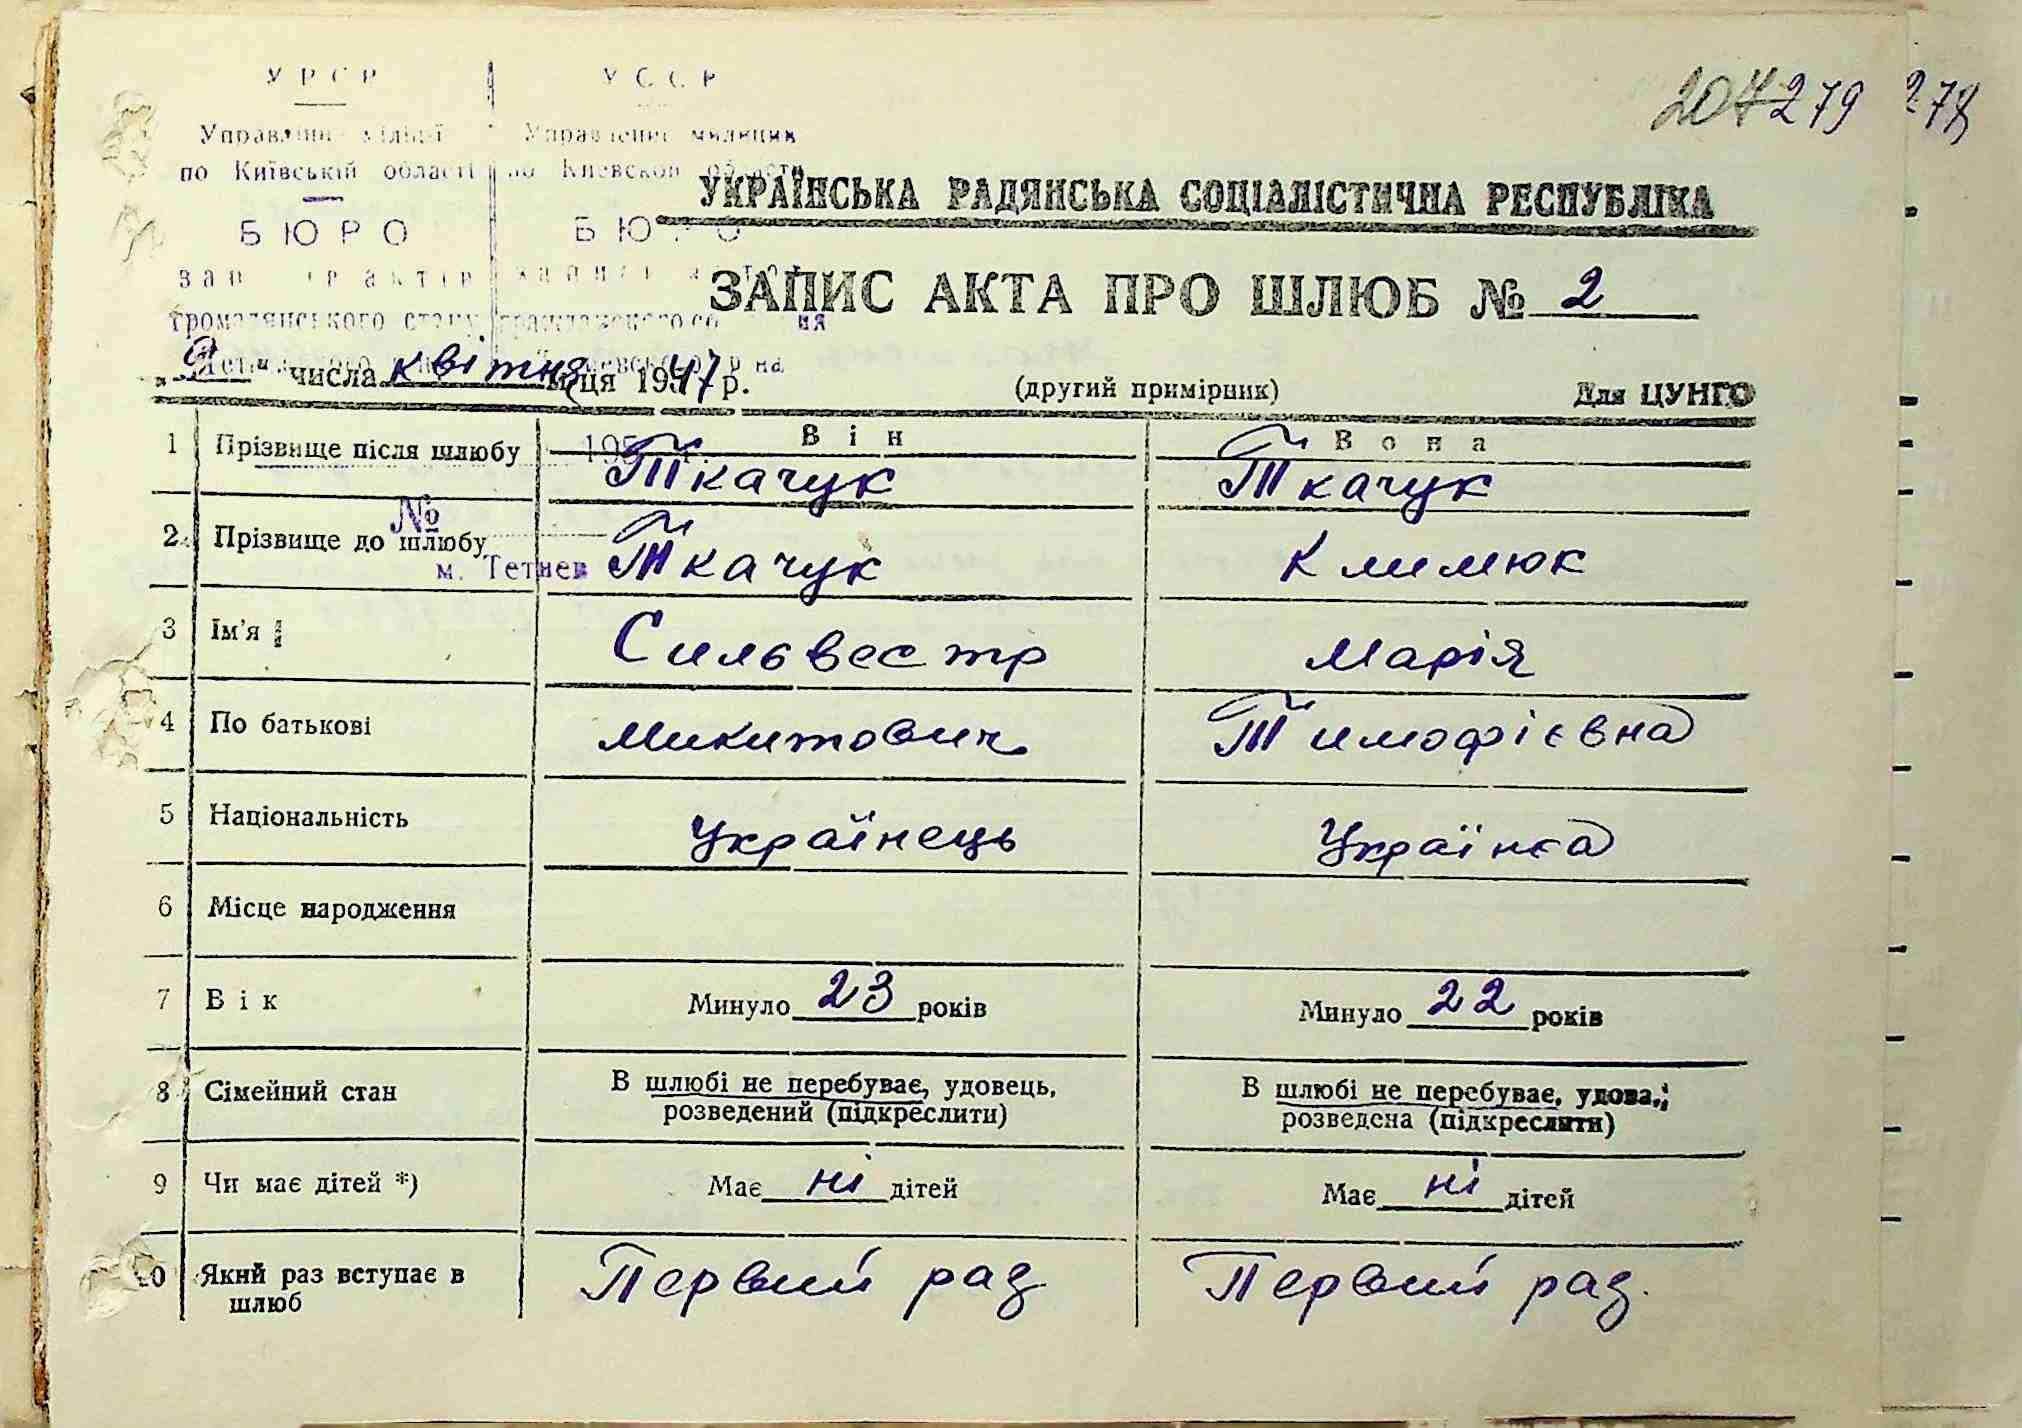 УРСР УССР
Управління міліції Управление милиции
по Київській області по Киевской области
204 279 278
УКРАЇНСЬКА РАДЯНСЬКА СОЦІАЛІСТИЧНА РЕСПУБЛІКА
БЮРО БЮРО
ЗАПИС АКТА ПРО ШЛЮБ № 2
громадянського стану гражданского со ия
" числа квітня м-ця 1947 р. (другий примірник) Для ЦУНГО
195 р.
Він Вона
1 Прізвище після шлюбу Ткачук Ткачук
№
2 Прізвище до шлюбу Ткачук Климюк
м. Тетиев
3 Ім'я Сильвестр Марія
4 По батькові Микитович Тимофієвна
5 Національність Українець Українка
6 Місце народження
7 Вік Минуло 23 років Минуло 22 років
8 Сімейний стан В шлюбі не перебуває, удовець, В шлюбі не перебуває, удова,
розведений (підкреслити) розведена (підкреслити)
9 Чи має дітей *) Має ні дітей Має ні дітей
10 Який раз вступає в Первий раз Первий раз.
шлюб